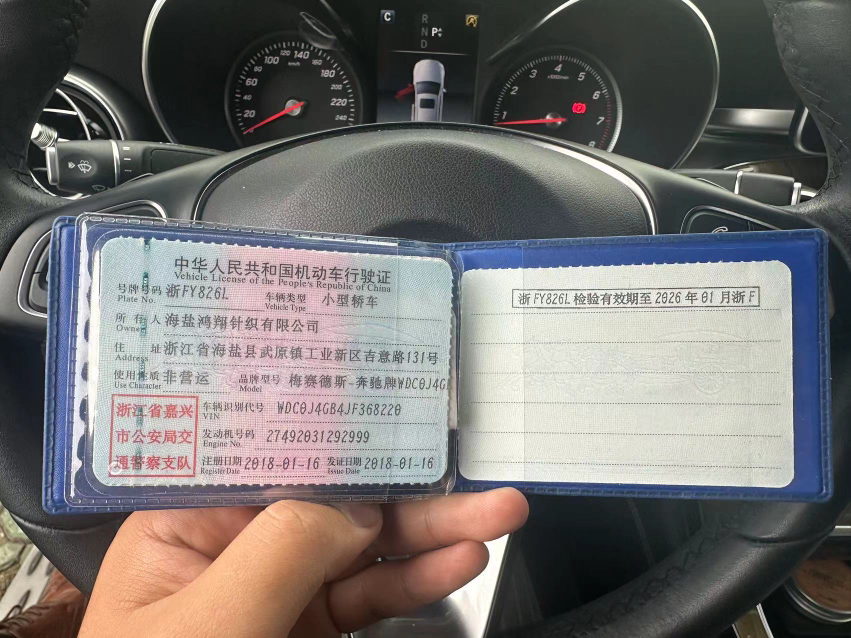 C
R
N
P
D
20
40
60
80
100
120
140
160
180
200
220
240
km/h
1
2
3
4
5
6
7
8
x1000/min
中华人民共和国机动车行驶证
Vehicle License of the People's Republic of China
号牌号码 浙FY826L 车辆类型 小型轿车
Plate No. Vehicle Type
所有人 海盐鸿翔针织有限公司
Owner
住址 浙江省海盐县武原镇工业新区吉意路131号
Address
使用性质 非营运 品牌型号 梅赛德斯-奔驰牌WDC0J4G
Use Character Model
浙江省嘉兴
市公安局交
通警察支队
车辆识别代号 WDC0J4GB4JF368220
VIN
发动机号码 27492031292999
Engine No.
注册日期 2018-01-16 发证日期 2018-01-16
Register Date Issue Date
浙FY826L 检验有效期至2026年01月浙F